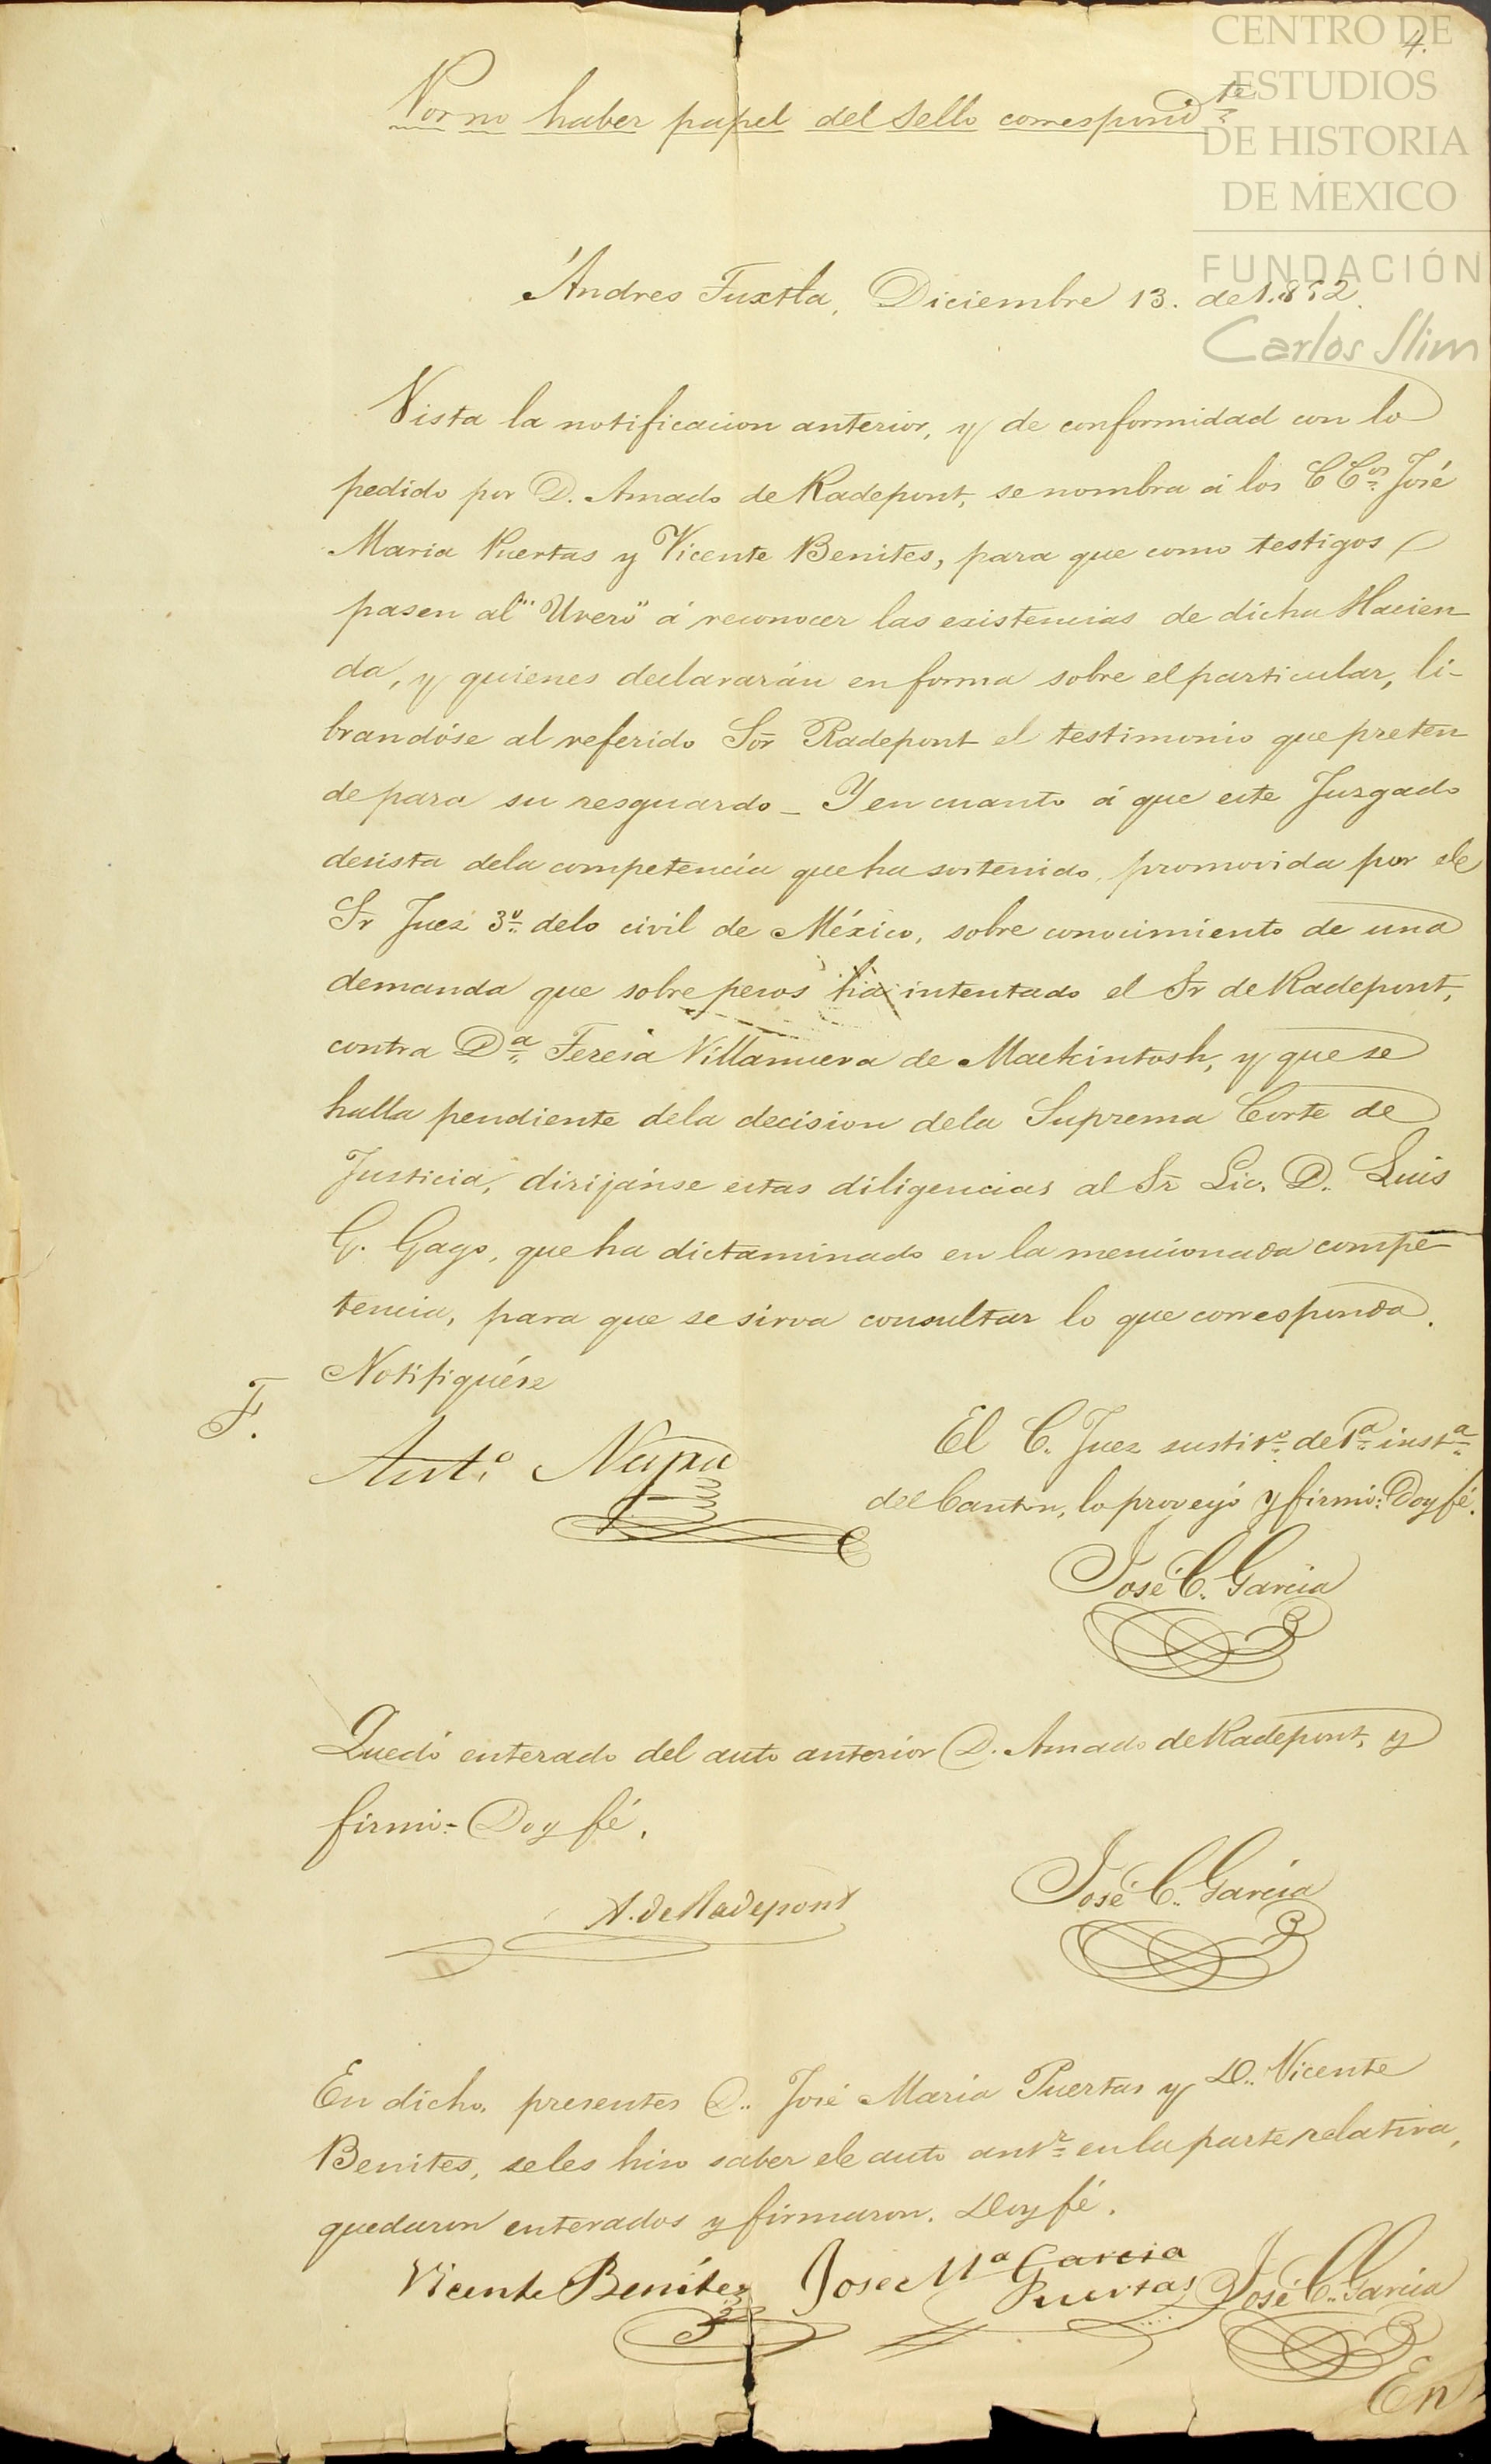 CENTRO DE
ESTUDIOS
DE HISTORIA
DE MEXICO
FUNDACIÓN
Carlos Slim
4.
Por no haber papel del sello correspondte
Andres Tuxtla, Diciembre 13. de 1.852.
Vista la notificacion anterior, y de conformidad con lo
pedido por D. Amado de Radepont, se nombra á los CCos José
Maria Puertas y Vicente Benites, para que como testigos
pasen al "Uvero" á reconocer las existencias de dicha Hacien
da, y quienes declararán en forma sobre el particular, li-
brandóse al referido Sor Radepont el testimonio que preten
de para su resguardo _ Y en cuanto á que este Juzgado
desista dela competencia que ha sostenido, promovida por el
Sr Juez 3o delo civil de México, sobre conocimiento de una
demanda que sobre pesos ha intentado el Sr de Radepont,
contra Da Teresa Villanueva de Mackintosh, y que se
halla pendiente dela decision dela Suprema Corte de
Justicia, dirijánse estas diligencias al Sr Lic. D. Luis
G. Gago, que ha dictaminado en la mencionada compe-
tencia, para que se sirva consultar lo que corresponda.
Notifiquése
F.
Anto
El C. Juez sustito de 1a insta
del Canton, lo proveyó y firmó: Doy fé.
José C. Garcia
Quedó enterado del auto anterior D. Amado de Radepont, y
firmó- Doy fé.
A. de Radepont
José C. Garcia
En dicho, presentes D. José Maria Puertas y D. Vicente
Benites, seles hiso saber el auto antr en la parte relativa,
quedaron enterados y firmaron. Doy fé.
Vicente Benitez
Jose Ma Garcia
Puertas
José C. Garcia
En